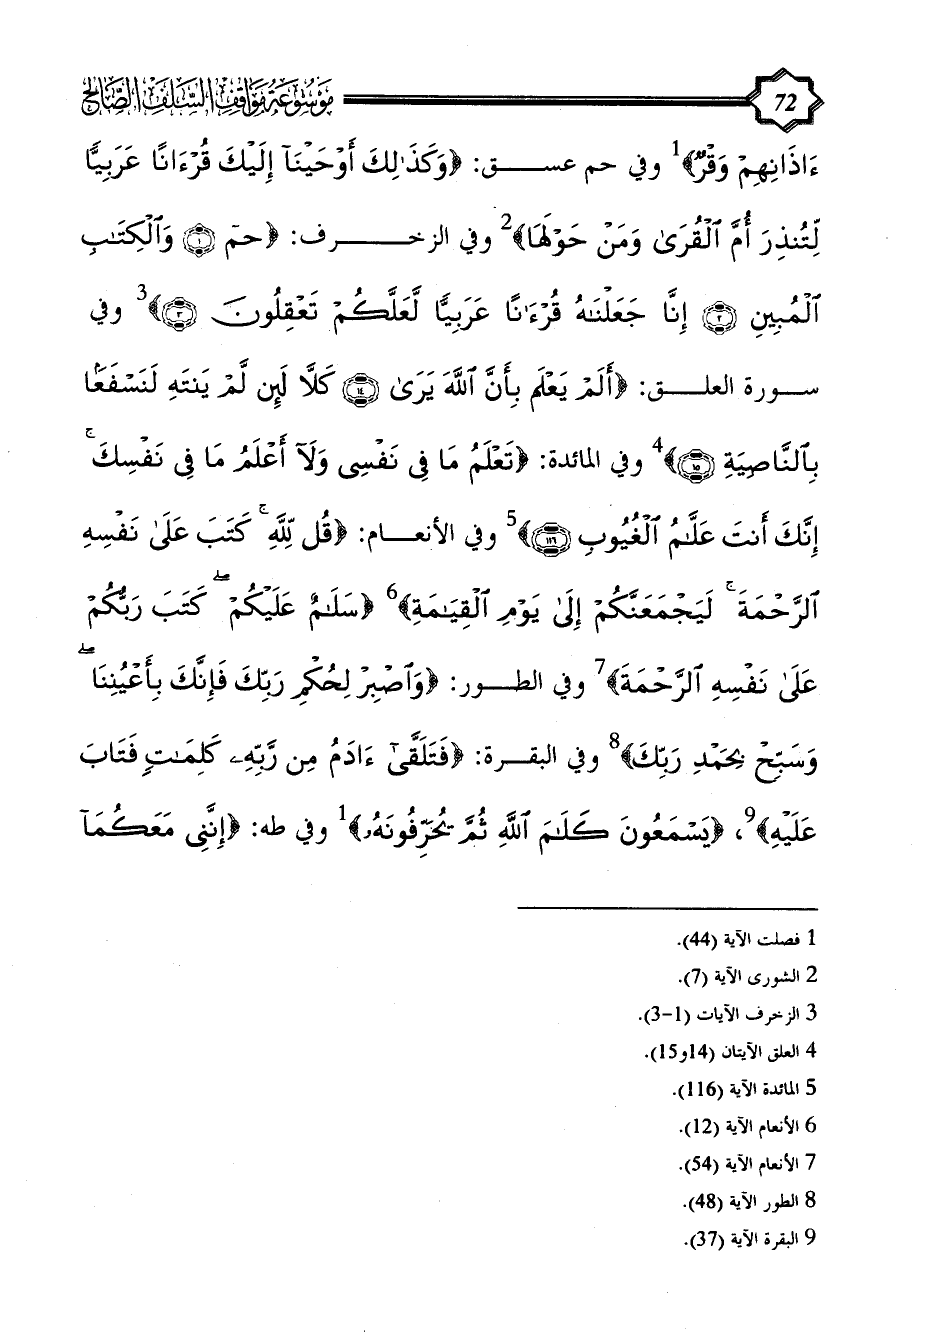 72 موسوعة مواقف السلف الصالح
ءَاذَانِهِمْ وَقْرٌ﴾1 وفي حم عسق: ﴿وَكَذَٰلِكَ أَوْحَيْنَآ إِلَيْكَ قُرْءَانًا عَرَبِيًّا
لِّتُنذِرَ أُمَّ ٱلْقُرَىٰ وَمَنْ حَوْلَهَا﴾2 وفي الزخرف: ﴿حمٓ ١ وَٱلْكِتَٰبِ
ٱلْمُبِينِ ٢ إِنَّا جَعَلْنَٰهُ قُرْءَٰنًا عَرَبِيًّا لَّعَلَّكُمْ تَعْقِلُونَ ٣﴾3 وفي
سورة العلق: ﴿أَلَمْ يَعْلَم بِأَنَّ ٱللَّهَ يَرَىٰ ١٤ كَلَّا لَئِن لَّمْ يَنتَهِ لَنَسْفَعًۢا
بِٱلنَّاصِيَةِ ١٥﴾4 وفي المائدة: ﴿تَعْلَمُ مَا فِى نَفْسِى وَلَآ أَعْلَمُ مَا فِى نَفْسِكَ ۚ
إِنَّكَ أَنتَ عَلَّٰمُ ٱلْغُيُوبِ ١١٦﴾5 وفي الأنعام: ﴿قُل لِّلَّهِ ۚ كَتَبَ عَلَىٰ نَفْسِهِ
ٱلرَّحْمَةَ ۚ لَيَجْمَعَنَّكُمْ إِلَىٰ يَوْمِ ٱلْقِيَٰمَةِ﴾6 ﴿سَلَٰمٌ عَلَيْكُمْ ۖ كَتَبَ رَبُّكُمْ
عَلَىٰ نَفْسِهِ ٱلرَّحْمَةَ﴾7 وفي الطور: ﴿وَٱصْبِرْ لِحُكْمِ رَبِّكَ فَإِنَّكَ بِأَعْيُنِنَا ۖ
وَسَبِّحْ بِحَمْدِ رَبِّكَ﴾8 وفي البقرة: ﴿فَتَلَقَّىٰٓ ءَادَمُ مِن رَّبِّهِۦ كَلِمَٰتٍ فَتَابَ
عَلَيْهِ﴾9، ﴿يَسْمَعُونَ كَلَٰمَ ٱللَّهِ ثُمَّ يُحَرِّفُونَهُۥ﴾1 وفي طه: ﴿إِنَّنِى مَعَكُمَآ
1 فصلت الآية (44).
2 الشورى الآية (7).
3 الزخرف الآيات (1-3).
4 العلق الآيتان (14و15).
5 المائدة الآية (116).
6 الأنعام الآية (12).
7 الأنعام الآية (54).
8 الطور الآية (48).
9 البقرة الآية (37).